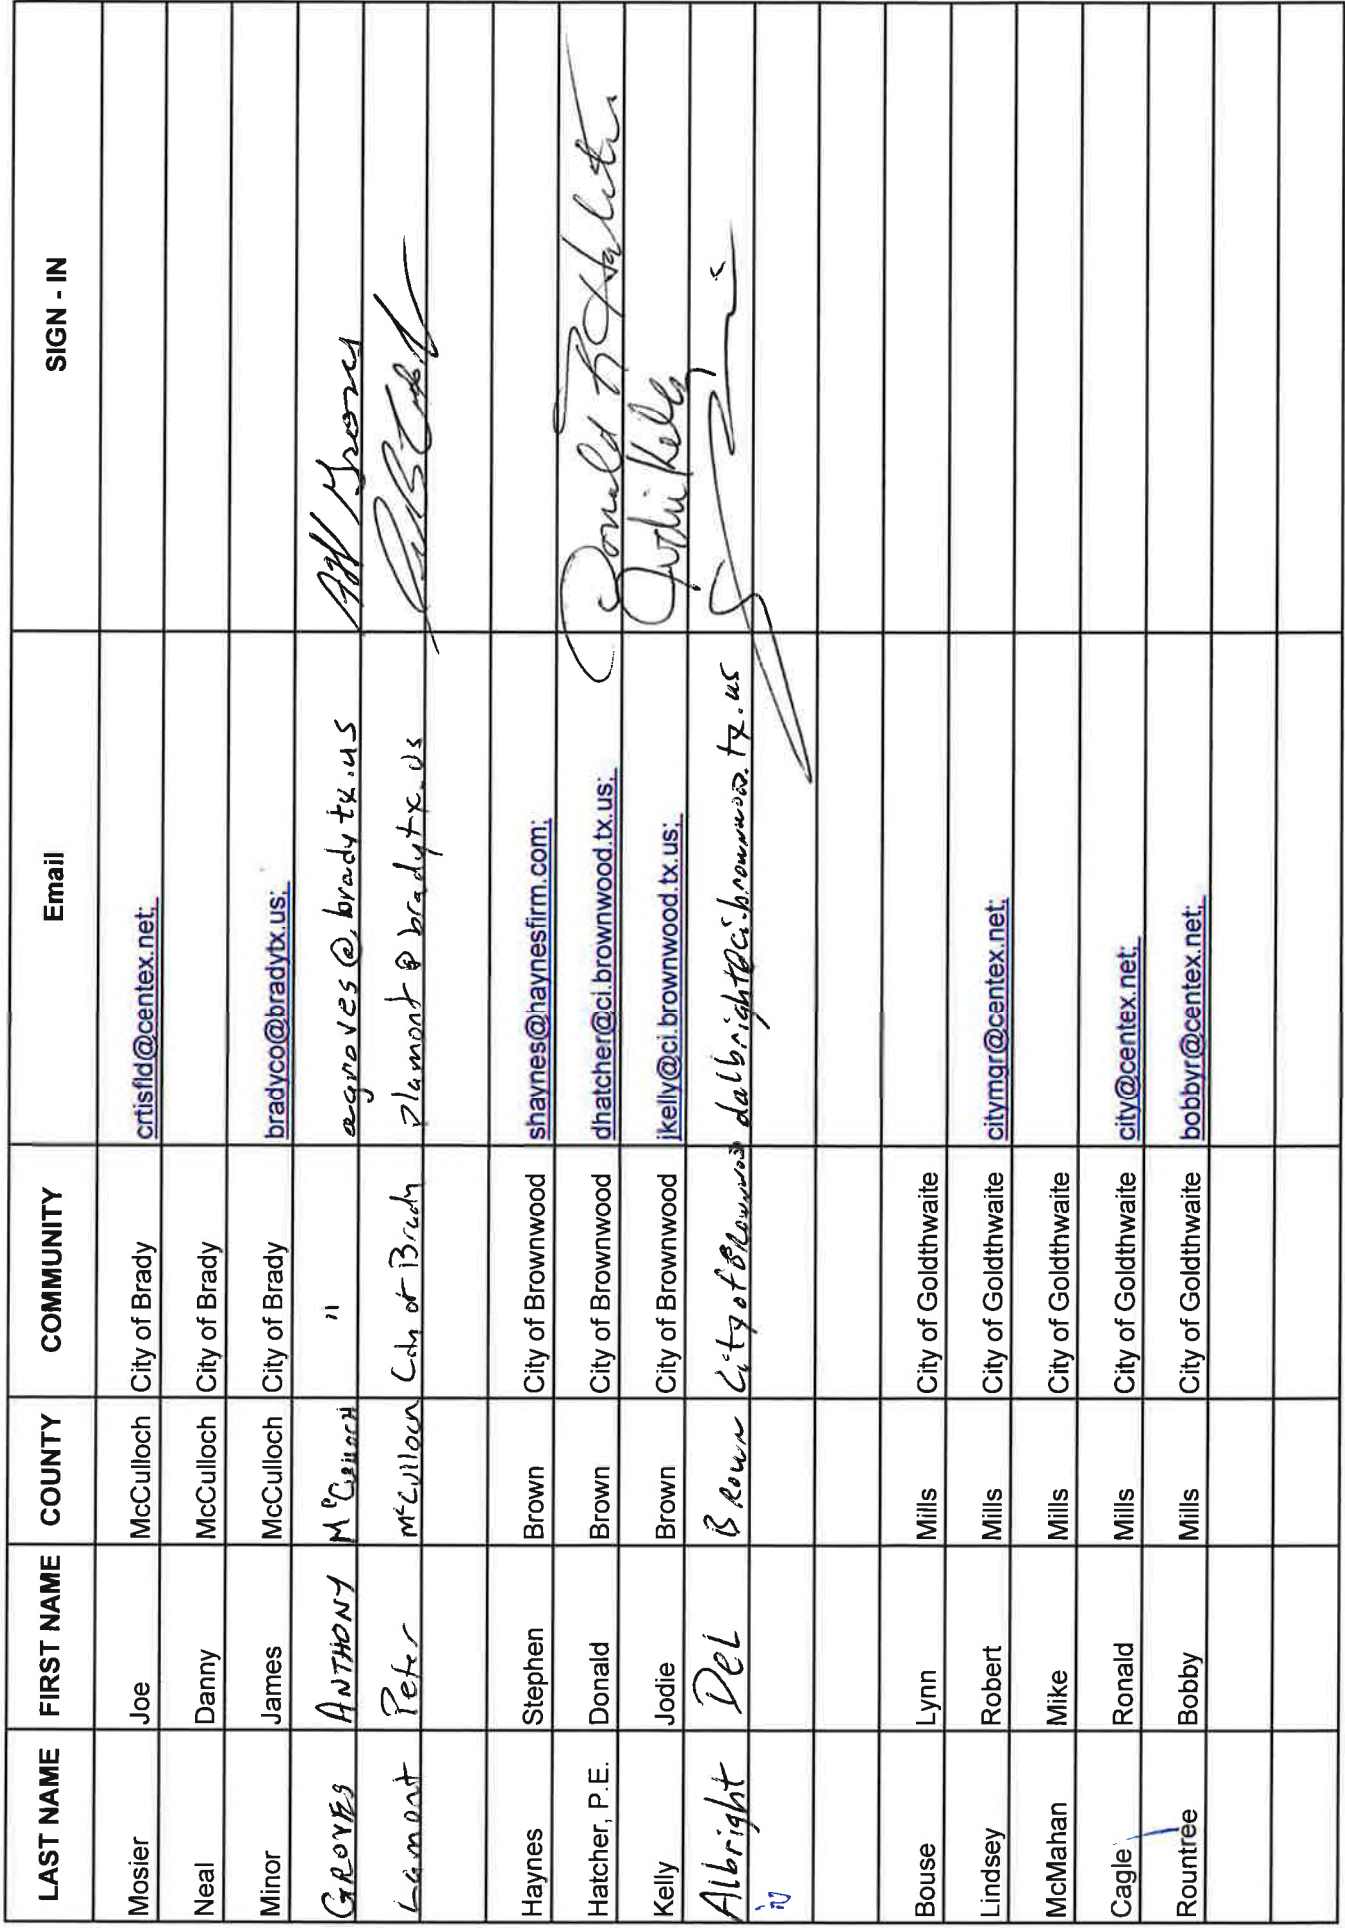 LAST NAME FIRST NAME COUNTY COMMUNITY Email SIGN - IN
Mosier Joe McCulloch City of Brady crtisfld@centex.net;
Neal Danny McCulloch City of Brady
Minor James McCulloch City of Brady bradyco@bradytx.us;
GROVES ANTHONY McCulloch " agroves@bradytx.us
Lamont Peter McCulloch City of Brady plamont@bradytx.us
Haynes Stephen Brown City of Brownwood shaynes@haynesfirm.com;
Hatcher, P.E. Donald Brown City of Brownwood dhatcher@ci.brownwood.tx.us; Donald R Hatcher
Kelly Jodie Brown City of Brownwood jkelly@ci.brownwood.tx.us; Jodie Kelly
Albright Del Brown City of Brownwood dalbright@ci.brownwood.tx.us
Bouse Lynn Mills City of Goldthwaite
Lindsey Robert Mills City of Goldthwaite citymgr@centex.net;
McMahan Mike Mills City of Goldthwaite
Cagle Ronald Mills City of Goldthwaite city@centex.net;
Rountree Bobby Mills City of Goldthwaite bobbyr@centex.net;